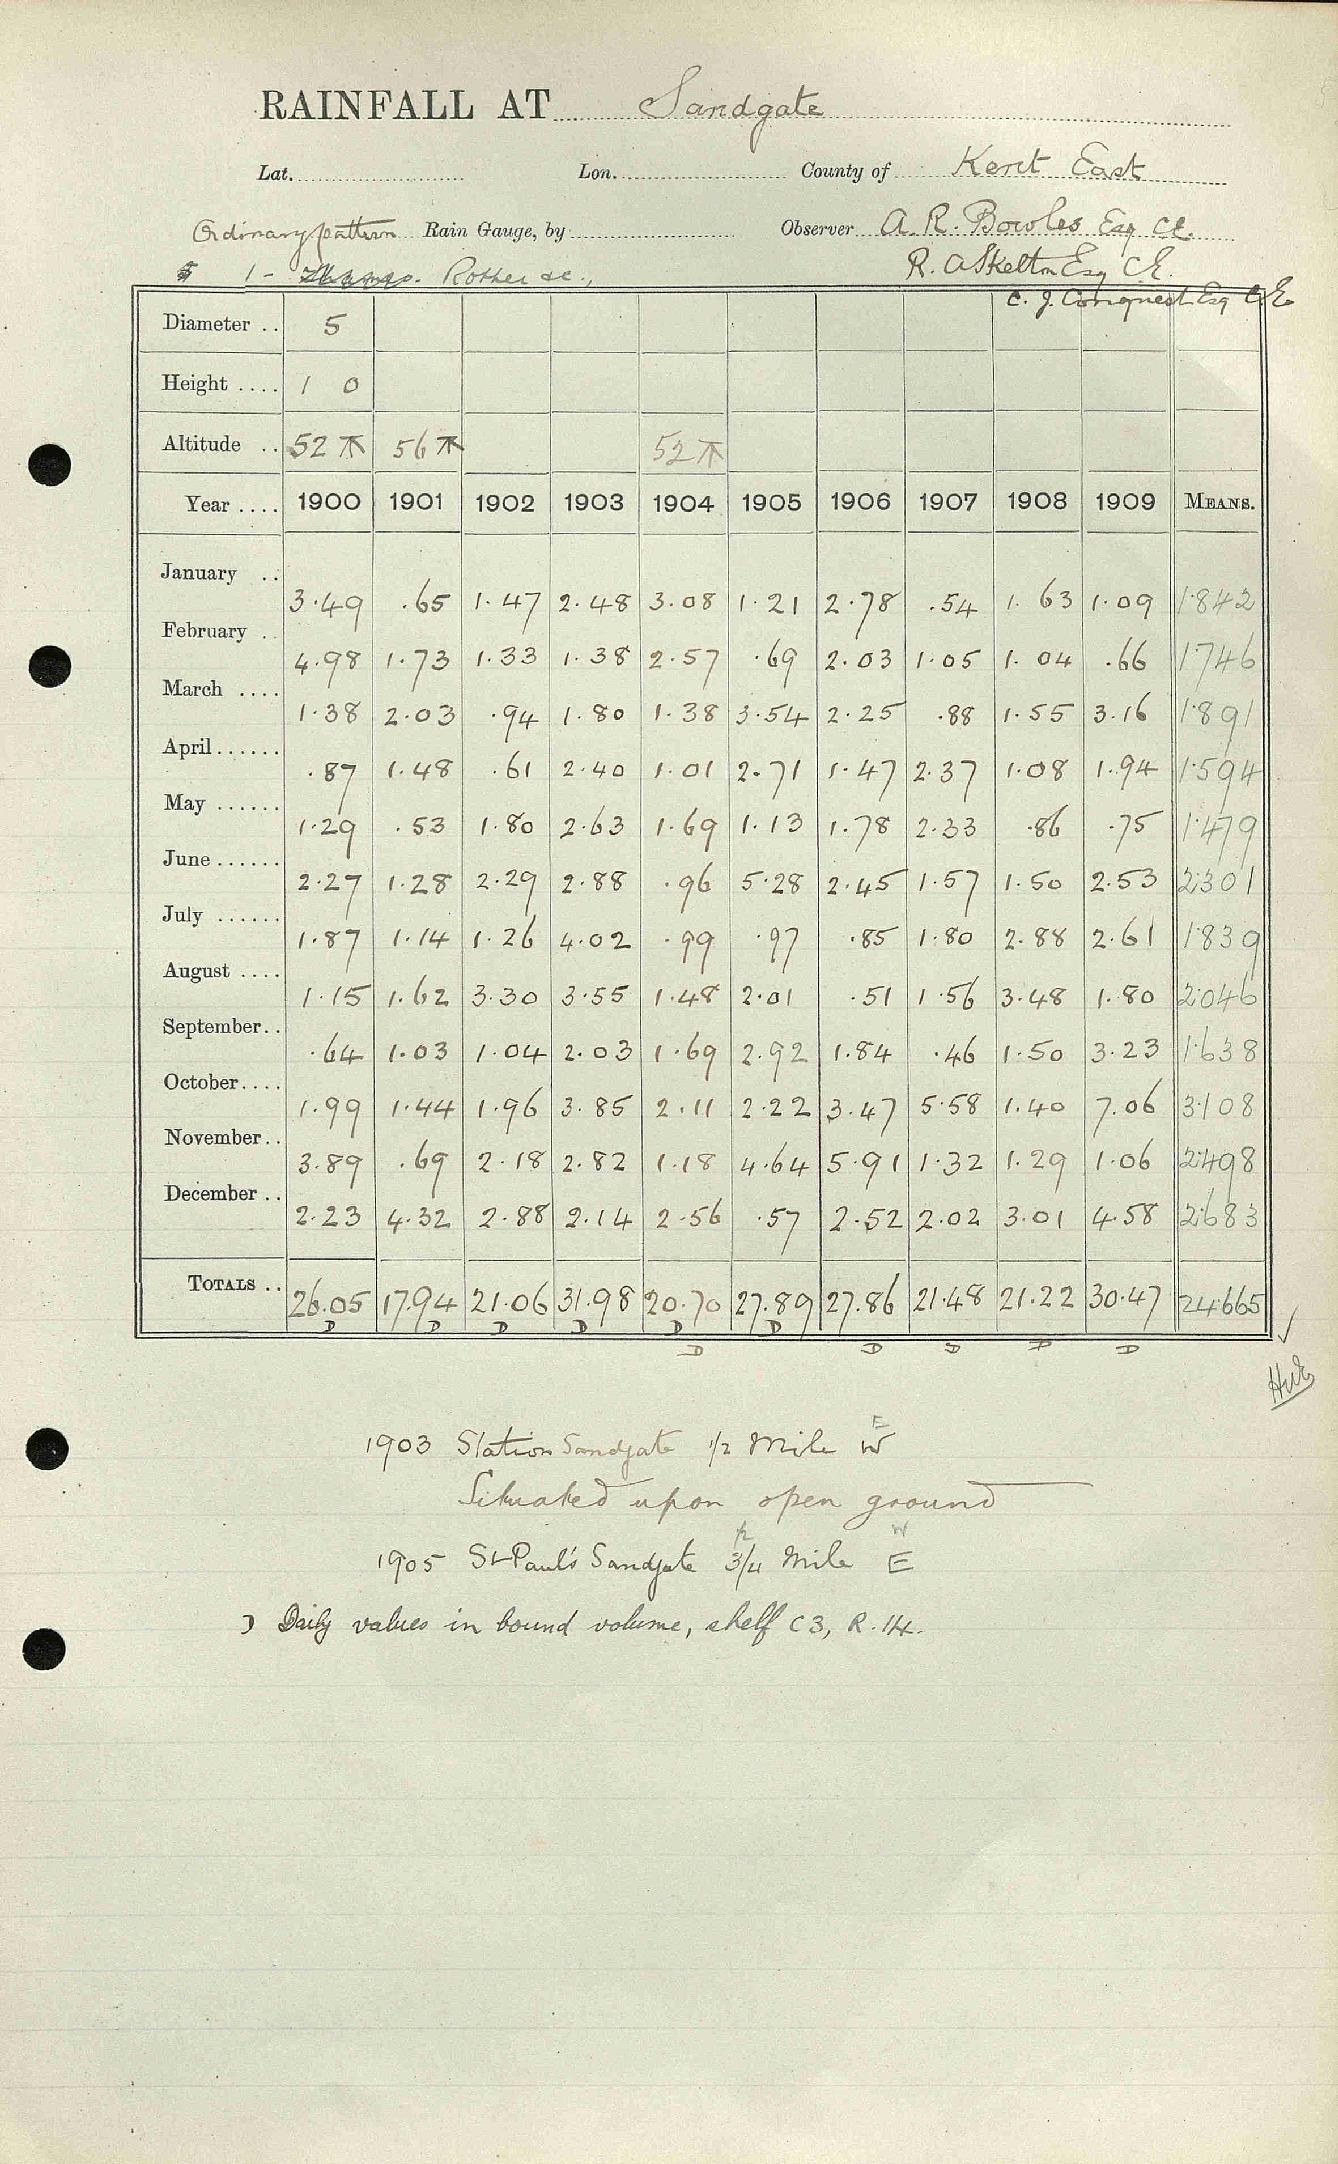 RAINFALL AT Sandgate
Lat. Lon. County of Kent East
Ordinary pattern Rain Gauge, by Observer A. R. Bowles Esq CE.
1 - Rother &c., R. A Skelton Esq CE.
C. J. Conquest Esq CE
Diameter .. 5
Height .... 1 0
Altitude .. 52 56 52
Year .... 1900 1901 1902 1903 1904 1905 1906 1907 1908 1909 MEANS.
January .. 3.49 .65 1.47 2.48 3.08 1.21 2.78 .54 1.63 1.09 1.842
February .. 4.98 1.73 1.33 1.38 2.57 .69 2.03 1.05 1.04 .66 1746
March .... 1.38 2.03 .94 1.80 1.38 3.54 2.25 .88 1.55 3.16 1.891
April...... .87 1.48 .61 2.40 1.01 2.71 1.47 2.37 1.08 1.94 1.594
May ...... 1.29 .53 1.80 2.63 1.69 1.13 1.78 2.33 .86 .75 1.479
June ...... 2.27 1.28 2.29 2.88 .96 5.28 2.45 1.57 1.50 2.53 2.301
July ...... 1.87 1.14 1.26 4.02 .99 .97 .85 1.80 2.88 2.61 1.839
August .... 1.15 1.62 3.30 3.55 1.48 2.01 .51 1.56 3.48 1.80 2.046
September.. .64 1.03 1.04 2.03 1.69 2.92 1.84 .46 1.50 3.23 1.638
October.... 1.99 1.44 1.96 3.85 2.11 2.22 3.47 5.58 1.40 7.06 3.108
November.. 3.89 .69 2.18 2.82 1.18 4.64 5.91 1.32 1.29 1.06 2.498
December .. 2.23 4.32 2.88 2.14 2.56 .57 2.52 2.02 3.01 4.58 2.683
TOTALS .. 26.05 17.94 21.06 31.98 20.70 27.89 27.86 21.48 21.22 30.47 24.665
D D D D D D
D D D D D
1903 Station Sandgate 1/2 Mile W
E
Situated upon open ground
1905 St Paul's Sandgate 3/4 Mile E
W
D Daily values in bound volume, shelf C3, R.14.